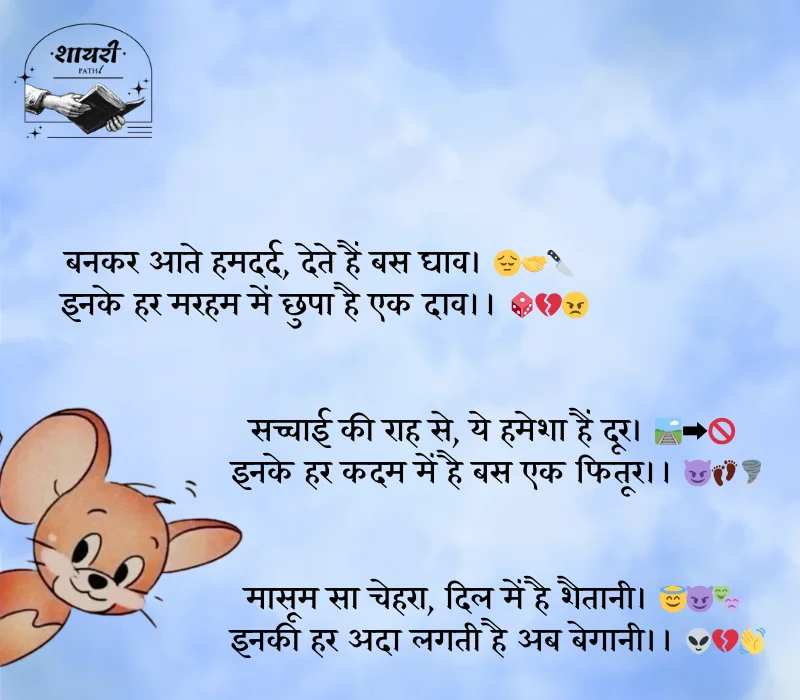 शायरी
PATH
बनकर आते हमदर्द, देते हैं बस घाव। 😔🤝🔪
इनके हर मरहम में छुपा है एक दाव।। 🎲💔😠
सच्चाई की राह से, ये हमेशा हैं दूर। 🛤️➡️🚫
इनके हर कदम में है बस एक फितूर।। 😈👣🌪️
मासूम सा चेहरा, दिल में है शैतानी। 😇😈🎭
इनकी हर अदा लगती है अब बेगानी।। 👽💔👋